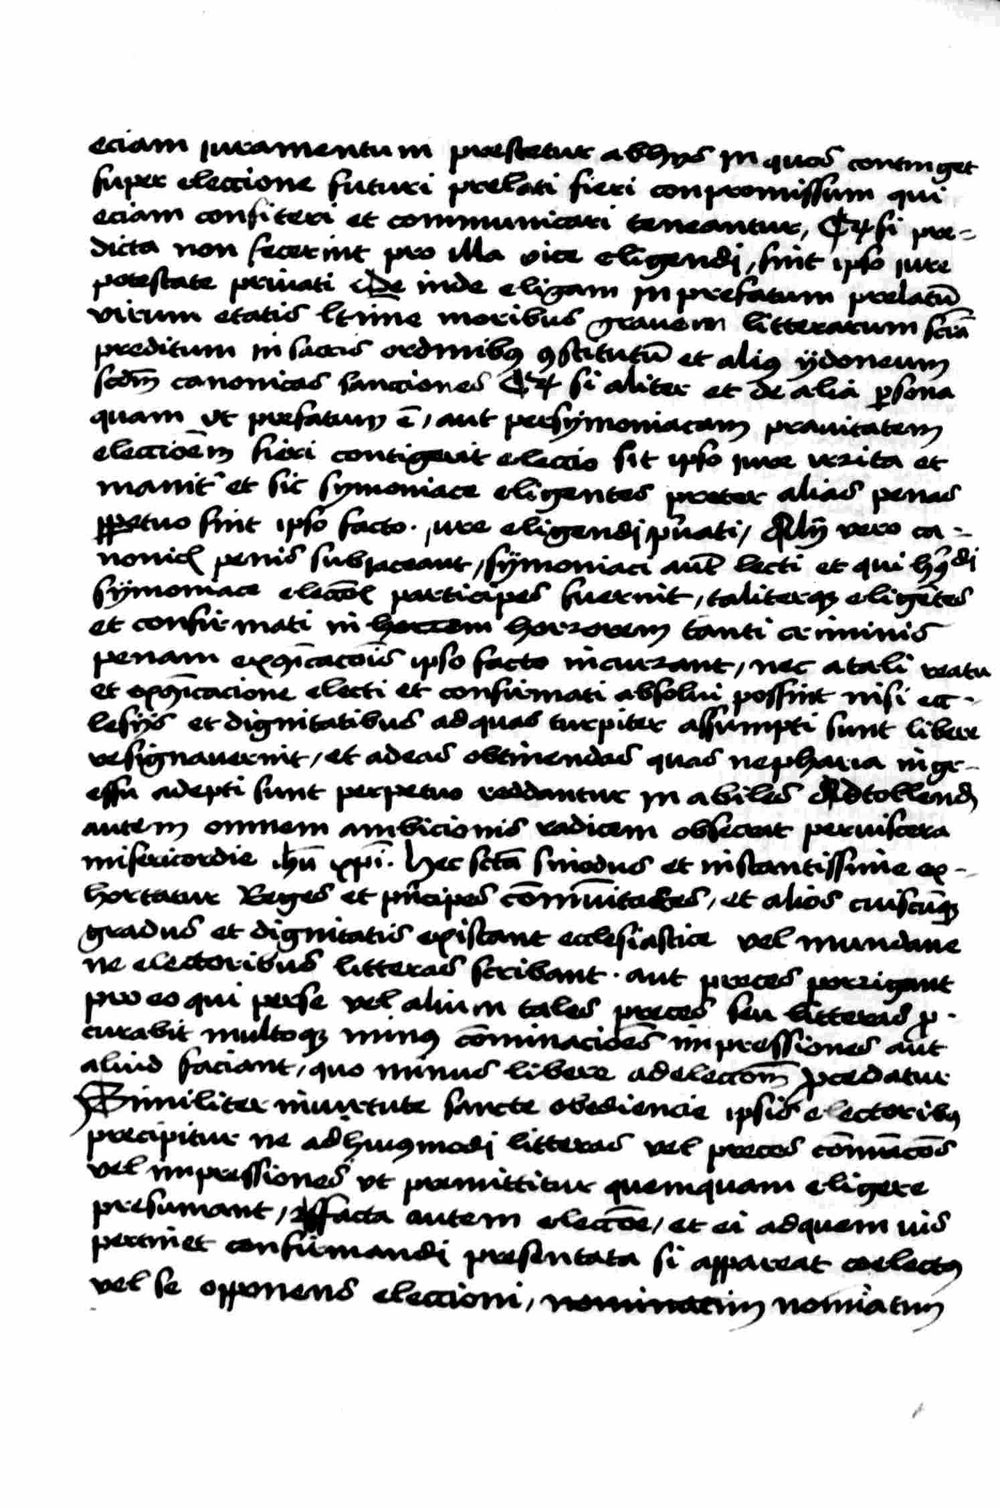 eciam iuramentum prestetur ab hijs in quos continget
super eleccione futuri prelati fieri conpromissum qui
eciam confiteri et communicari teneantur, Qꝫ si pre-
dicta non fecerint pro illa vice eligendi, sint ipso iure
potestate priuati Deinde eligant in prefatum prelatū
virum etatis ltime moribus grauem litterarum sciā
preditum in sacris ordinibꝫ ꝯstitutū et aliꝫ ydoneum
scdm̄ canonicas sancciones Qꝫ si aliter et de alia ꝑsona
quam vt prefatum ē, aut per symoniacam prauitatem
eleccioēm fieri contigerit eleccio sit ipso iure irrita et
et sic symoniace eligentes preter alias penas
ꝑpetuo sint ipso facto . iure eligendi pͥuati, Alij vero ca-
nonicꝭ penis subiaceant, symoniaci aut lecti et qui hꝫdi
symoniace eleccōꝭ participes fuerint, taliterqꝫ eligētes
et confirmati in horrorem tanti criminis
penam exꝯīcacōis ipso facto incurrant, nec a tali reatu
et exꝯīcacione electi et confirmati absolui possint nisi ec-
lesijs et dignitatibus ad quas turpiter assumpti sunt libere
resignauerint, et ad eas obtinendas quas nepharia ingr-
essu adepti sunt perpetuo reddantur inabiles Ad tollendā
autem omnem ambicionis radicem obsecrat per viscera
misericordie ihū xp̄i . hec sctā sinodus et instantissime ex-
hortatur Reges et pͥncipes cōmūitates, et alios cuiscūqꝫ
gradus et dignitatis existant ecclesiastice vel mundane
ne electoribus litteras scribant . aut preces porrigant
pro eo qui per se vel alium tales preces seu litteras ꝓ-
curabit multoqꝫ minꝫ cōminacioēs impressiones aut
aliud faciant, quo minus libere ad eleccōm ꝓcedatur
Similiter in virtute sancte obediencie ipsis electoribꝫ
precipitur ne ad huiꝫmodi litteras vel preces cōmīacōs
vel impressiones vt premittitur quemquam eligere
presumant, facta autem eleccōe, et ei ad quem ius
pertinet confirmandi presentata si appareat coelectꝫ
vel se opponens eleccioni, nominatim